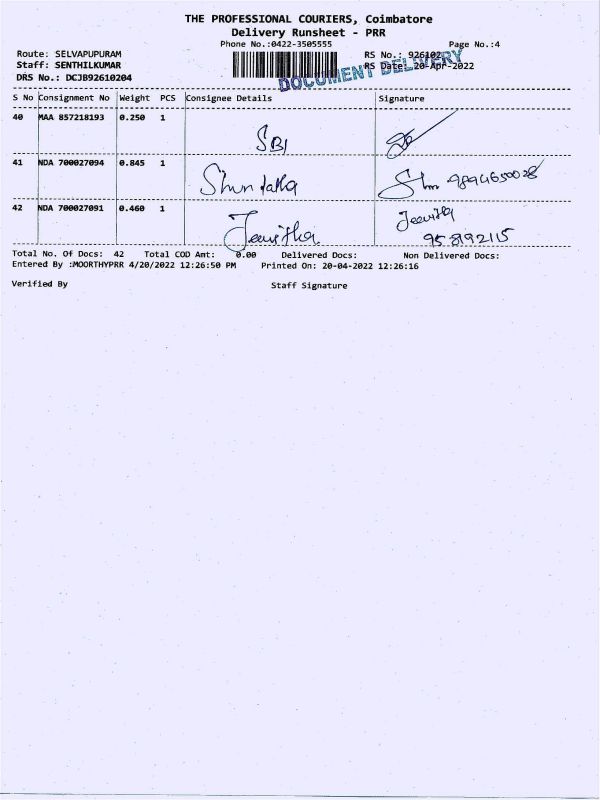 THE PROFESSIONAL COURIERS, Coimbatore
Delivery Runsheet - PRR
Phone No.:0422-3505555 Page No.:4
Route: SELVAPUPURAM RS No.: 926102
Staff: SENTHILKUMAR RS Date: 20-Apr-2022
DOCUMENT DELIVERY
DRS No.: DCJB92610204
S No Consignment No Weight PCS Consignee Details Signature
40 MAA 857218193 0.250 1
SBI
41 NDA 700027094 0.845 1
42 NDA 700027091 0.460 1
Total No. Of Docs: 42 Total COD Amt: 0.00 Delivered Docs: Non Delivered Docs:
Entered By :MOORTHYPRR 4/20/2022 12:26:50 PM Printed On: 20-04-2022 12:26:16
Verified By Staff Signature